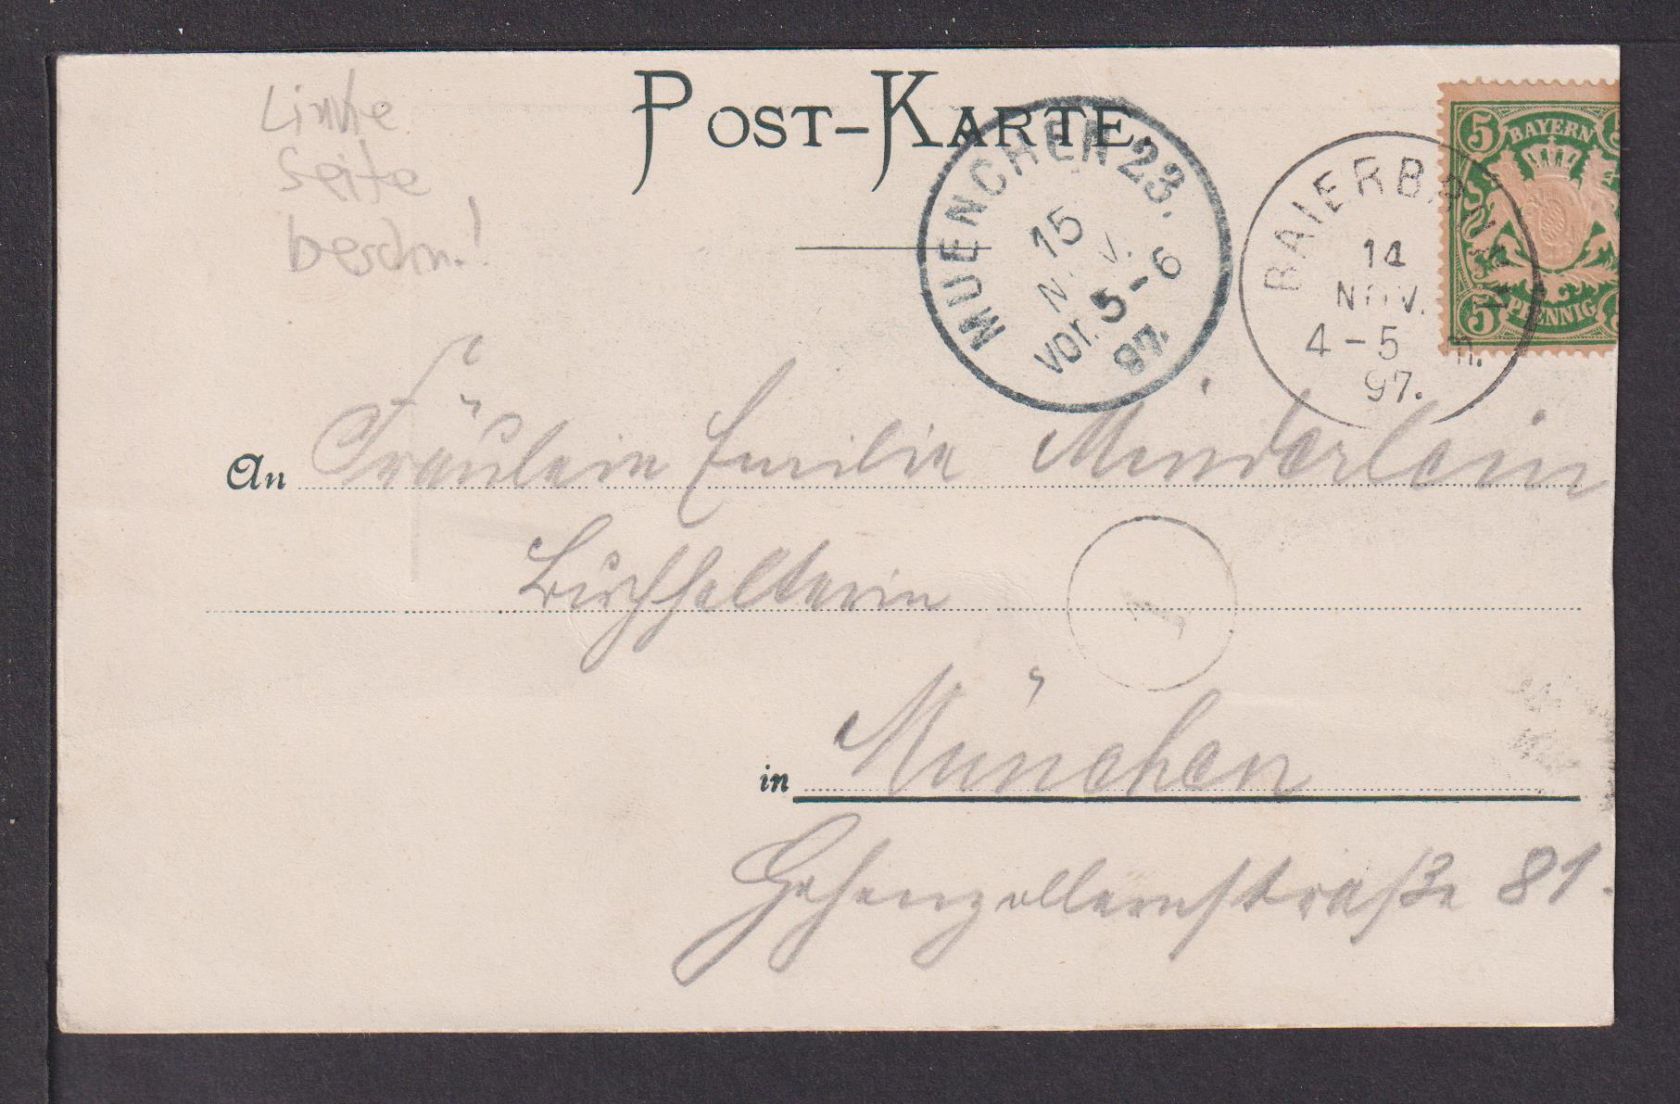 Linke
Seite
beschn.!
POST-KARTE.
MUENCHEN 23.
15
NOV.
Vor. 5-6
97.
BAIERBRUNN
14
NOV.
4-5 N.
97.
5 BAYERN
5 PFENNIG
An Fräulein Emilie Minderlein
Buchhalterin
1
in München
Hohenzollernstraße 81.